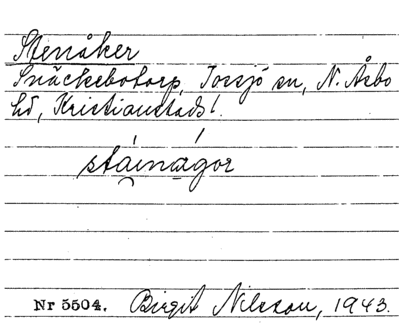 Stenåker
Snäckebotorp, Torsjö sn, N. Åsbo
hd, Kristianstads l.
stáinágor
Nr 5504. Birgit Nilsson, 1943.